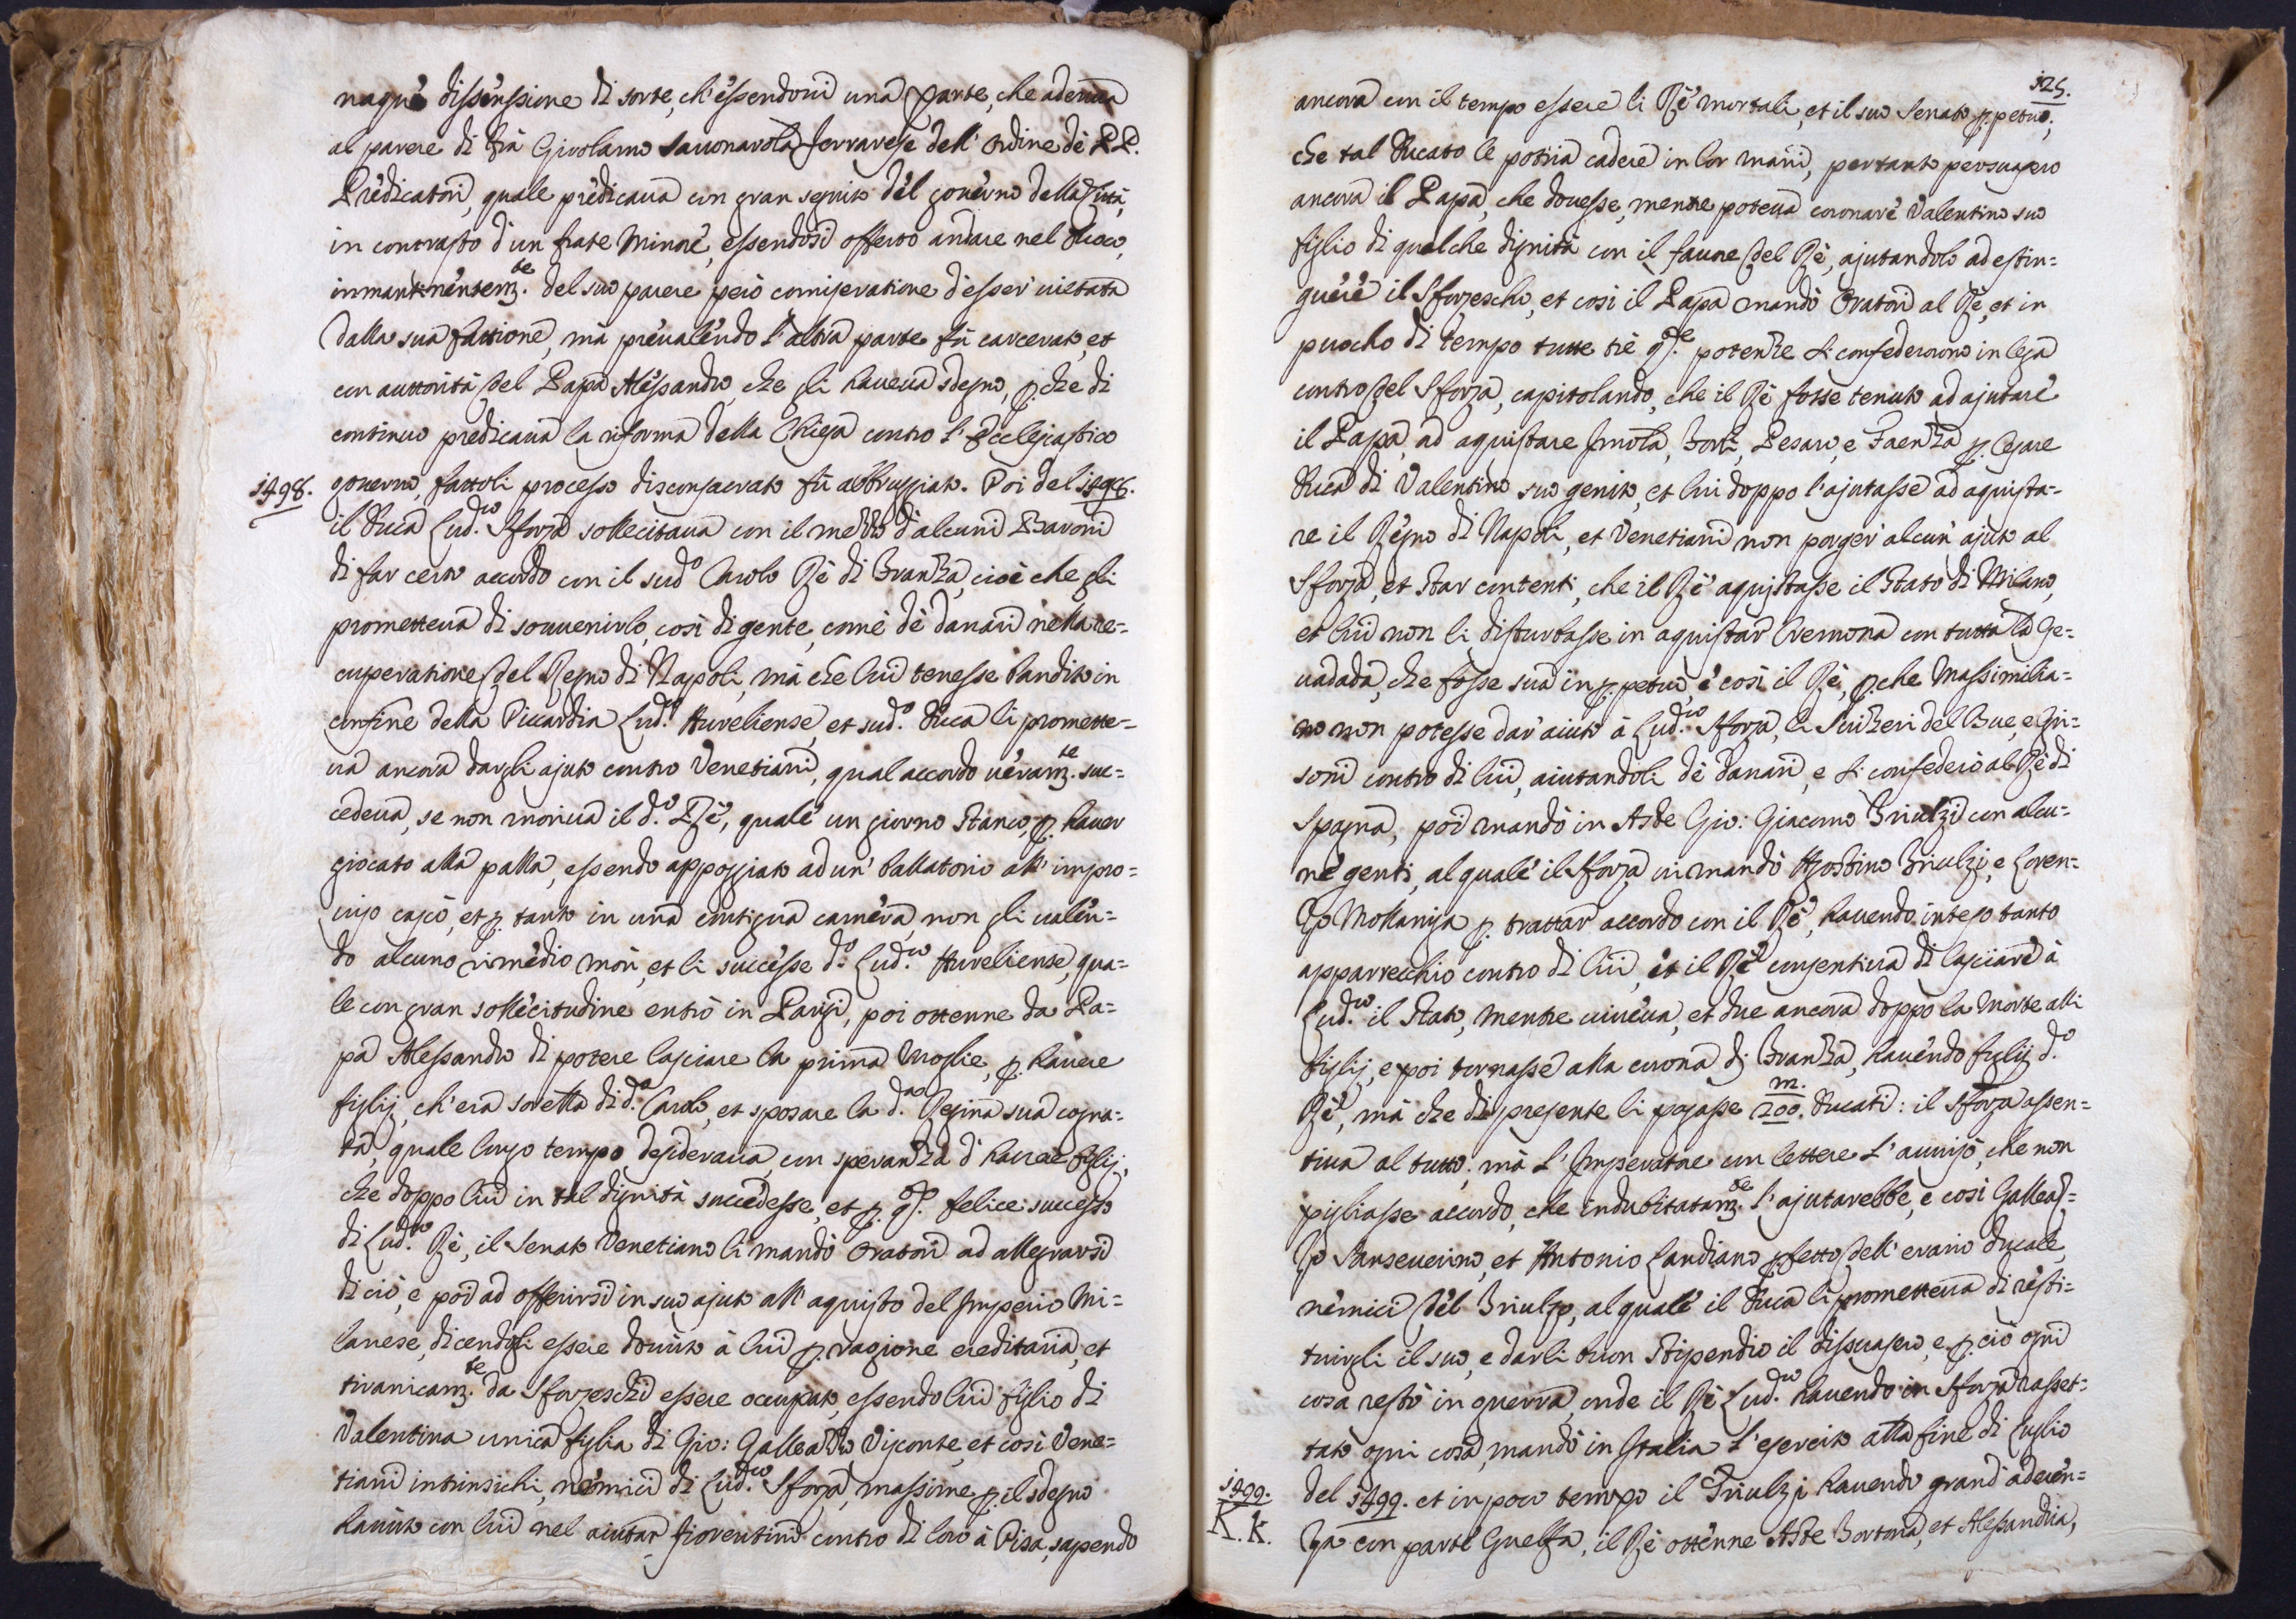 naque dissenssione di sorte, ch'essendoui una parte, che aderiua
al parere di frà Girolamo Sauonarola ferrarese dell' ordine dè PP.
Predicatori, quale predicaua con gran seguito del gouerno della Città,
in contrasto d'un frate Minore, essendosi offerto andare nel fuoco,
in mantinentem.te del suo parere però comiseratione d'esser uietata
dalla sua fattione, mà preualendo l'altra parte fù carcerato, et
con auttorità del Papa Alessandro, che gli haueua sdegno, p. che di
continuo predicaua la riforma della Chiesa contro l'Ecclesiastico
1498. gouerno, fattoli processo disconsacrato fù abbruggiato. Poi del 1498.
il Duca Lud.co Sforza sollecitaua con il mezzo d'alcuni Baroni
di far certo accordo con il sud.o Carolo Rè di Franza, cioè che gli
prometteua di souuenirlo, così di gente, come dè danari nella re=
cuperatione del Regno di Napoli, mà che lui tenesse bandito in
confine della Piccardia Lud.co Aureliense, et sud.o Duca li promette=
ua ancora dargli ajuto contro Venetiani, qual accordo ueram.te suc=
cedeua, se non moriua il d.o Rè, quale un giorno stanco, p. hauer
giocato alla palla, essendo appoggiato ad un' ballatorio all' impro=
uiso cascò, et p. tanto in una contigua camera, non gli ualen=
do alcuno rimedio morì, et li successe d.o Lud.co Aureliense, qua=
le con gran sollecitudine entrò in Parigi, poi ottenne da Pa=
pa Alessandro di potere lasciare la prima Moglie, p. hauere
figlij, ch'era sorella di d.o Carolo, et sposare la d.a Regina sua cogna=
ta, quale longo tempo desideraua con speranza d'hauere figlij,
che doppo lui in tal dignità succedesse, et p. q.o felice successo
di Lud.co Rè, il Senato Venetiano li mandò Oratori ad allegrarsi
di ciò, e poi ad offerirsi in suo ajuto all' aquisto del Imperio Mi=
lanese, dicendoli essere douuto à lui p. ragione ereditaria, et
tiranicam.te da Sforzeschi essere occupato, essendo lui figlio di
Valentina unica figlia di Gio: Galleazzo Visconte, et così Vene=
tiani intrinsichi, nemici di Lud.co Sforza, massime p. il sdegno
hauuto con lui nel aiutar fiorentini contro di loro à Pisa, sapendo
325.
ancora con il tempo essere li Rè mortali, et il suo Senato p.petuo,
che tal Ducato le potria cadere in lor mani, pertanto persuasero
ancora il Papa, che douesse, mentre poteua coronare Valentino suo
figlio di qualche dignità con il fauore del Rè, ajutandolo ad estin=
guere il Sforzescho, et così il Papa mandò Oratori al Rè, et in
puocho di tempo tutte trè q.te potenze si confederorono in lega
contro del Sforza, capitolando, che il Rè fosse tenuto ad ajutare
il Papa, ad aquistare Imola, Forlì, Pesaro, e Faenza p. Cesare
Duca di Valentino suo genito, et lui doppo l'ajutasse ad aquista=
re il Regno di Napoli, et Venetiani non porger' alcun' ajuto al
Sforza, et star contenti, che il Rè aquistasse il Stato di Milano,
et lui non li disturbasse in aquistar Cremona con tutta la Ge=
radada, che fosse sua in p.petuo, e così il Rè, p.che Massimilia=
no non potesse dar' aiuto à Lud.co Sforza, li Suizeri del Bue, e Gri=
soni contro di lui, aiutandoli dè danari, e si confederò al Rè di
Spagna, poi mandò in Aste Gio: Giacomo Triulzi con alcu=
ne genti, al quale il Sforza ui mandò Agostino Triulzi, e Loren=
zo Mozzaniga p. trattar accordo con il Rè, hauendo inteso tanto
apparrecchio contro di lui, et il Rè consentiua di lasciare à
Lud.co il Stato, mentre uiueua, et due ancora doppo la Morte alli
figlij, e poi tornasse alla corona di Franza, hauendo figlij d.o
Rè, mà che di presente li pagasse 200.m. Ducati: il Sforza assen=
tiua al tutto, mà l'Imperatore con lettere l'auuisò, che non
pigliasse accordo, che indubitatam.te l'ajutarebbe, e così Galleaz=
zo Sanseuerino, et Antonio Landiano p.fetto dell' erario ducale,
nemici del Triulzo, al quale il Duca li prometteua di resti=
tuirgli il suo, e darli buon stipendio il dissuasero, e p. ciò ogni
cosa restò in guerra, onde il Rè Lud.co hauendo in Sforza rasset=
tato ogni cosa, mandò in Italia l'esercito alla fine di Luglio
1499. del 1499. et in poco tempo il Triulzi hauendo grand' aderen=
K. K. za con parte Guelfa, il Rè ottenne Aste Tortona, et Alessandria,